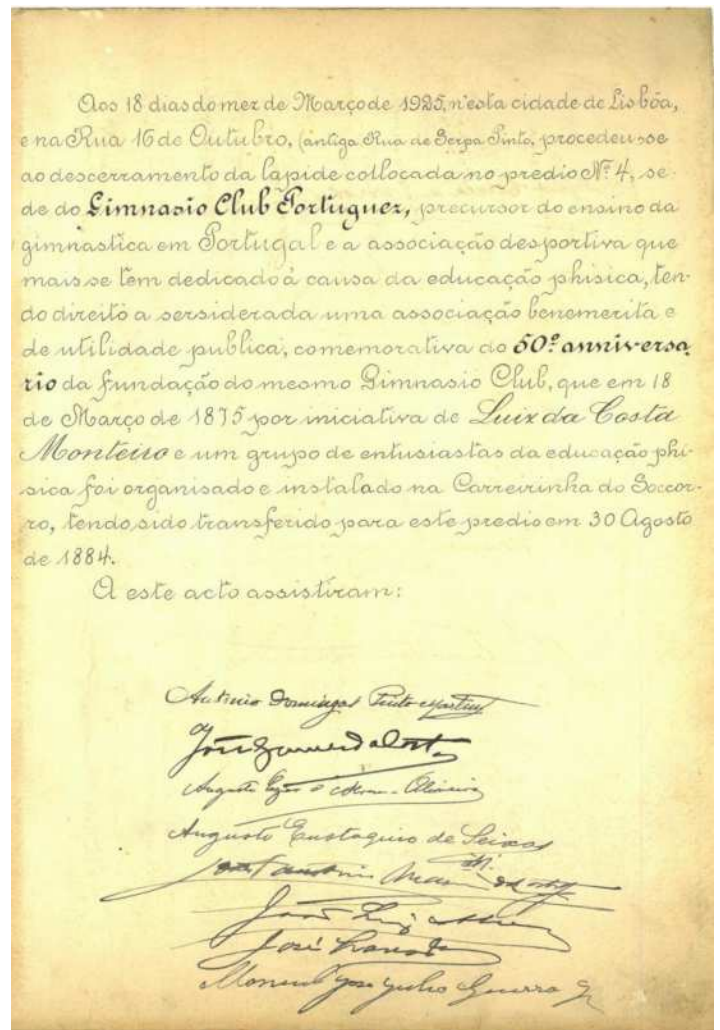 Aos 18 dias do mez de Março de 1925, n'esta cidade de Lisbôa,
e na Rua 16 de Outubro, (antiga Rua de Serpa Pinto, procedeu-se
ao descerramento da lapide collocada no predio Nº 4, sé-
de do Gimnasio Club Portuguez, precursor do ensino da
gimnastica em Portugal e a associação desportiva que
mais se tem dedicado á causa da educação phisica, ten-
do direito a sersiderada uma associação benemerita e
de utilidade publica, comemorativa do 50º anniversa
rio da fundação do mesmo Gimnasio Club, que em 18
de Março de 1875 por iniciativa de Luiz da Costa
Monteiro e um grupo de entusiastas da educação phi-
sica foi organisado e instalado na Carreirinha do Soccor-
ro, tendo sido transferido para este predio em 30 Agosto
de 1884.
A este acto assistiram:
Antonio Domingos Pinto Martins
Augusto
Augusto Eustaquio de Seixas
João Luiz
José
Manuel José Julio Guerra